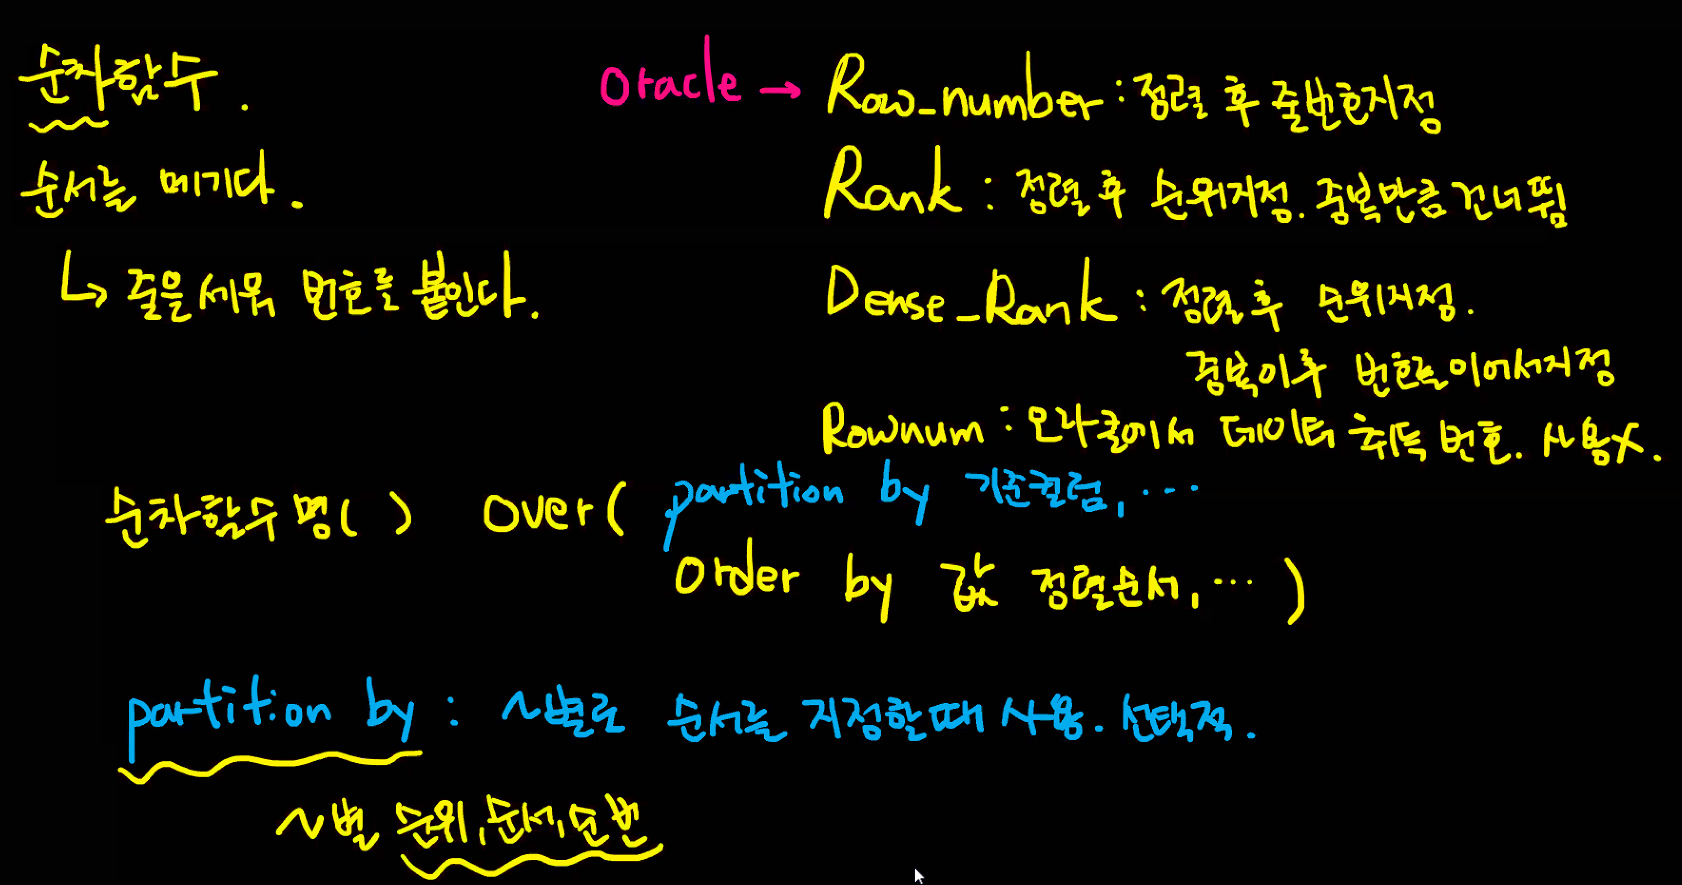 순차함수.
순서를 메기다.
↳ 줄을 세워 번호를 붙인다.
oracle → Row_number : 정렬 후 줄번호지정
Rank : 정렬 후 순위지정. 중복만큼 건너뜀
Dense_Rank : 정렬 후 순위지정.
중복이후 번호를 이어서지정
Rownum : 오라클에서 데이터 취득 번호. 사용X.
순차함수명( ) over( partition by 기준컬럼, ...
order by 값 정렬순서, ... )
partition by : ~별로 순서를 지정할때 사용. 선택적.
~별 순위, 순서, 순번